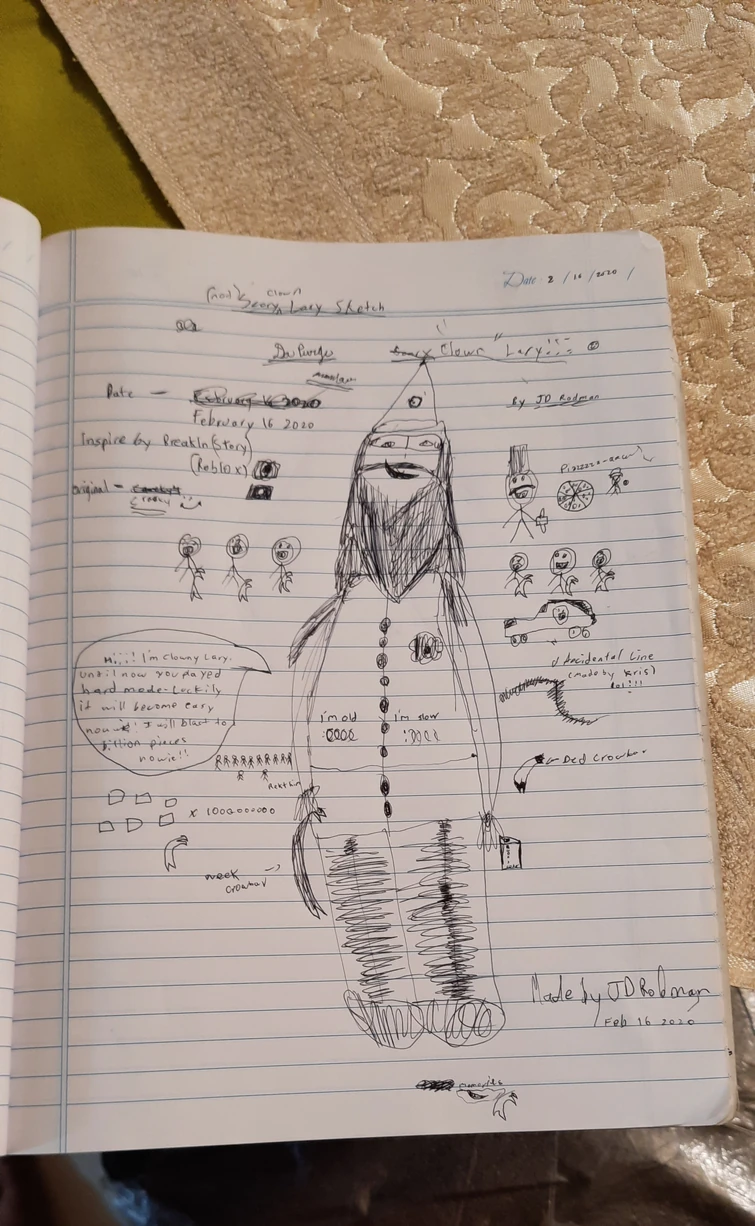 Date 2/16/2020/
clown
(not) Scary Lary Sketch
Scary Clown Lary
Date - February 16 2020
February 16 2020
By JD Rodman
Inspire by BreakIn(Story)
(Roblox)
original -
Hi I'm Clowny Lary.
until now you played
hard mode. Luckily
it will become easy
now I will blast to
billion pieces
nowie!!
Accidental Line
(made by Kris)
lol!!!
I'm old
I'm slow
Ded Crowbar
x 1000000000
week
crowbar
Made by JD Rodman
Feb 16 2020
memories